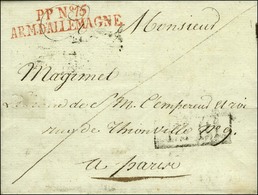 PP N°15
ARM.D'ALLEMAGNE
Monsieur
Magimel
de M. L'empereur et roi
rue de Thionville N° 9
a paris